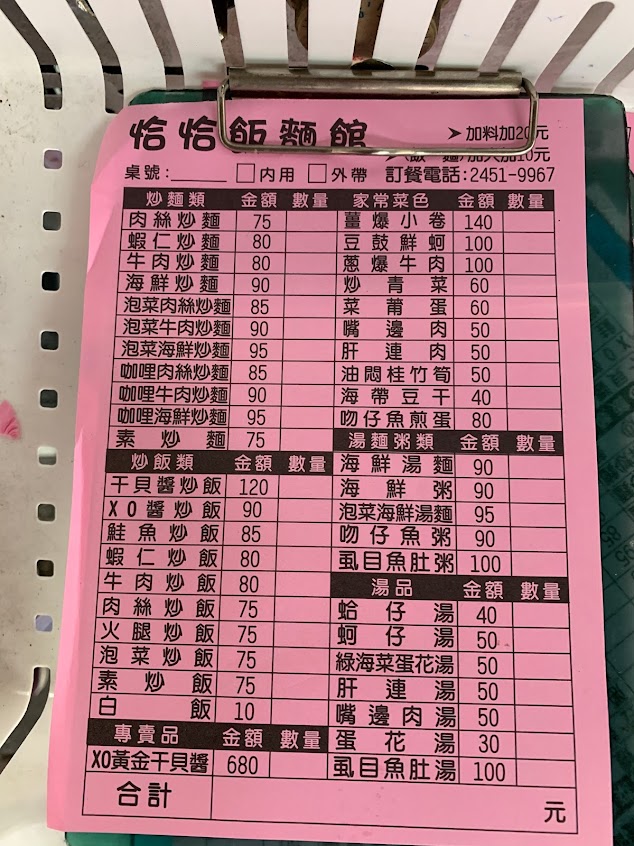 恰恰飯麵館
➤加料加20元
桌號:______ □內用 □外帶 訂餐電話:2451-9967
炒麵類 金額 數量
肉絲炒麵 75
蝦仁炒麵 80
牛肉炒麵 80
海鮮炒麵 90
泡菜肉絲炒麵 85
泡菜牛肉炒麵 90
泡菜海鮮炒麵 95
咖哩肉絲炒麵 85
咖哩牛肉炒麵 90
咖哩海鮮炒麵 95
素炒麵 75
炒飯類 金額 數量
干貝醬炒飯 120
XO醬炒飯 90
鮭魚炒飯 85
蝦仁炒飯 80
牛肉炒飯 80
肉絲炒飯 75
火腿炒飯 75
泡菜炒飯 75
素炒飯 75
白飯 10
專賣品 金額 數量
XO黃金干貝醬 680
家常菜色 金額 數量
薑爆小卷 140
豆鼓鮮蚵 100
蔥爆牛肉 100
炒青菜 60
菜莆蛋 60
嘴邊肉 50
肝連肉 50
油悶桂竹筍 50
海帶豆干 40
吻仔魚煎蛋 80
湯麵粥類 金額 數量
海鮮湯麵 90
海鮮粥 90
泡菜海鮮湯麵 95
吻仔魚粥 90
虱目魚肚粥 100
湯品 金額 數量
蛤仔湯 40
蚵仔湯 50
綠海菜蛋花湯 50
肝連湯 50
嘴邊肉湯 50
蛋花湯 30
虱目魚肚湯 100
合計 元